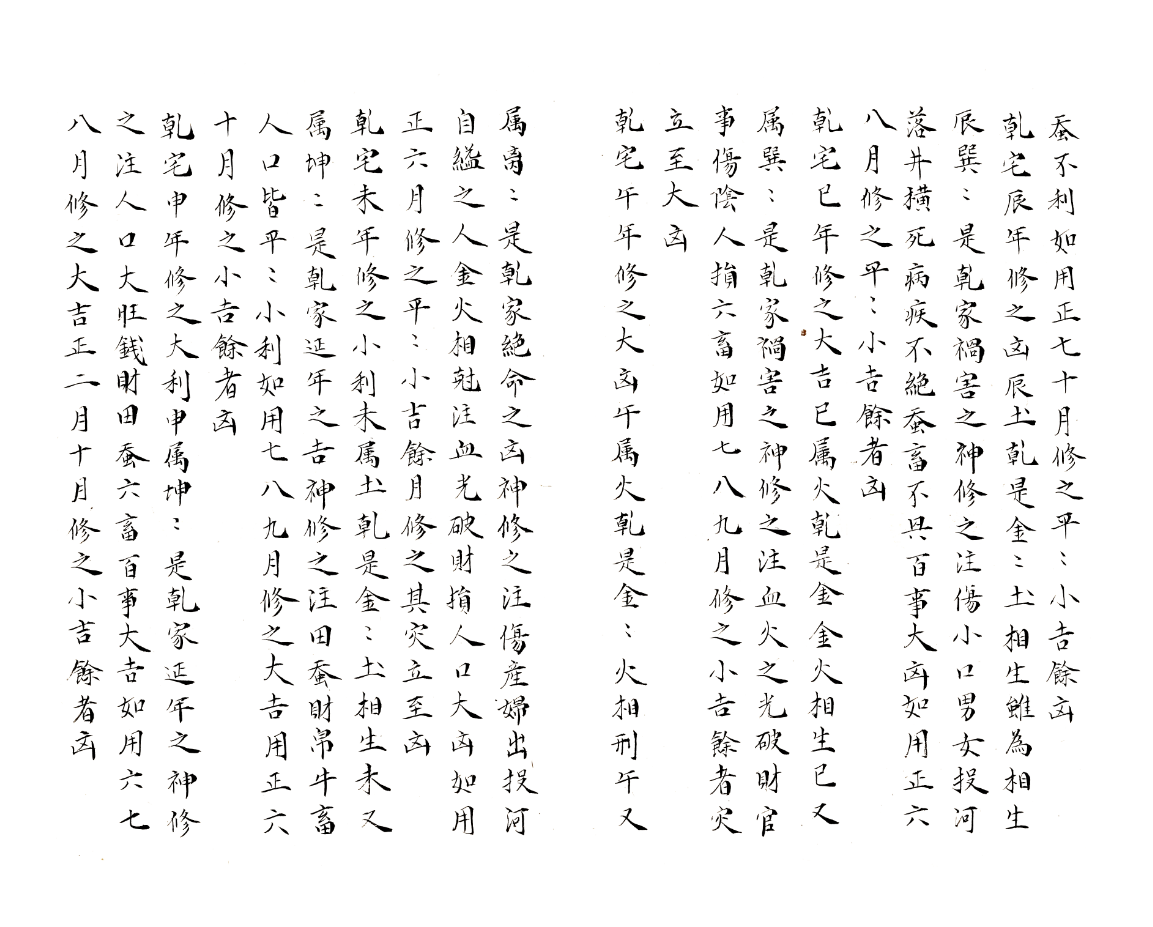 蚕不利如用正七十月修之平〻小吉餘凶
乹宅辰年修之凶辰土乹是金〻土相生雖為相生
辰巽〻是乹家禍害之神修之注傷小口男女投河
落井橫死病疾不絕蚕畜不具百事大凶如用正六
八月修之平〻小吉餘者凶
乹宅巳年修之大吉巳属火乹是金金火相生巳又
属巽〻是乹家禍害之神修之注血火之光破財官
事傷陰人損六畜如用七八九月修之小吉餘者灾
立至大凶
乹宅午年修之大凶午属火乹是金〻火相刑午又
属离〻是乹家絕命之凶神修之注傷産婦出投河
自縊之人金火相尅注血光破財損人口大凶如用
正六月修之平〻小吉餘月修之其灾立至凶
乹宅未年修之小利未属土乹是金〻土相生未又
属坤〻是乹家延年之吉神修之注田蚕財帛牛畜
人口皆平〻小利如用七八九月修之大吉用正六
十月修之小吉餘者凶
乹宅申年修之大利申属坤〻是乹家延年之神修
之注人口大旺錢財田蚕六畜百事大吉如用六七
八月修之大吉正二月十月修之小吉餘者凶